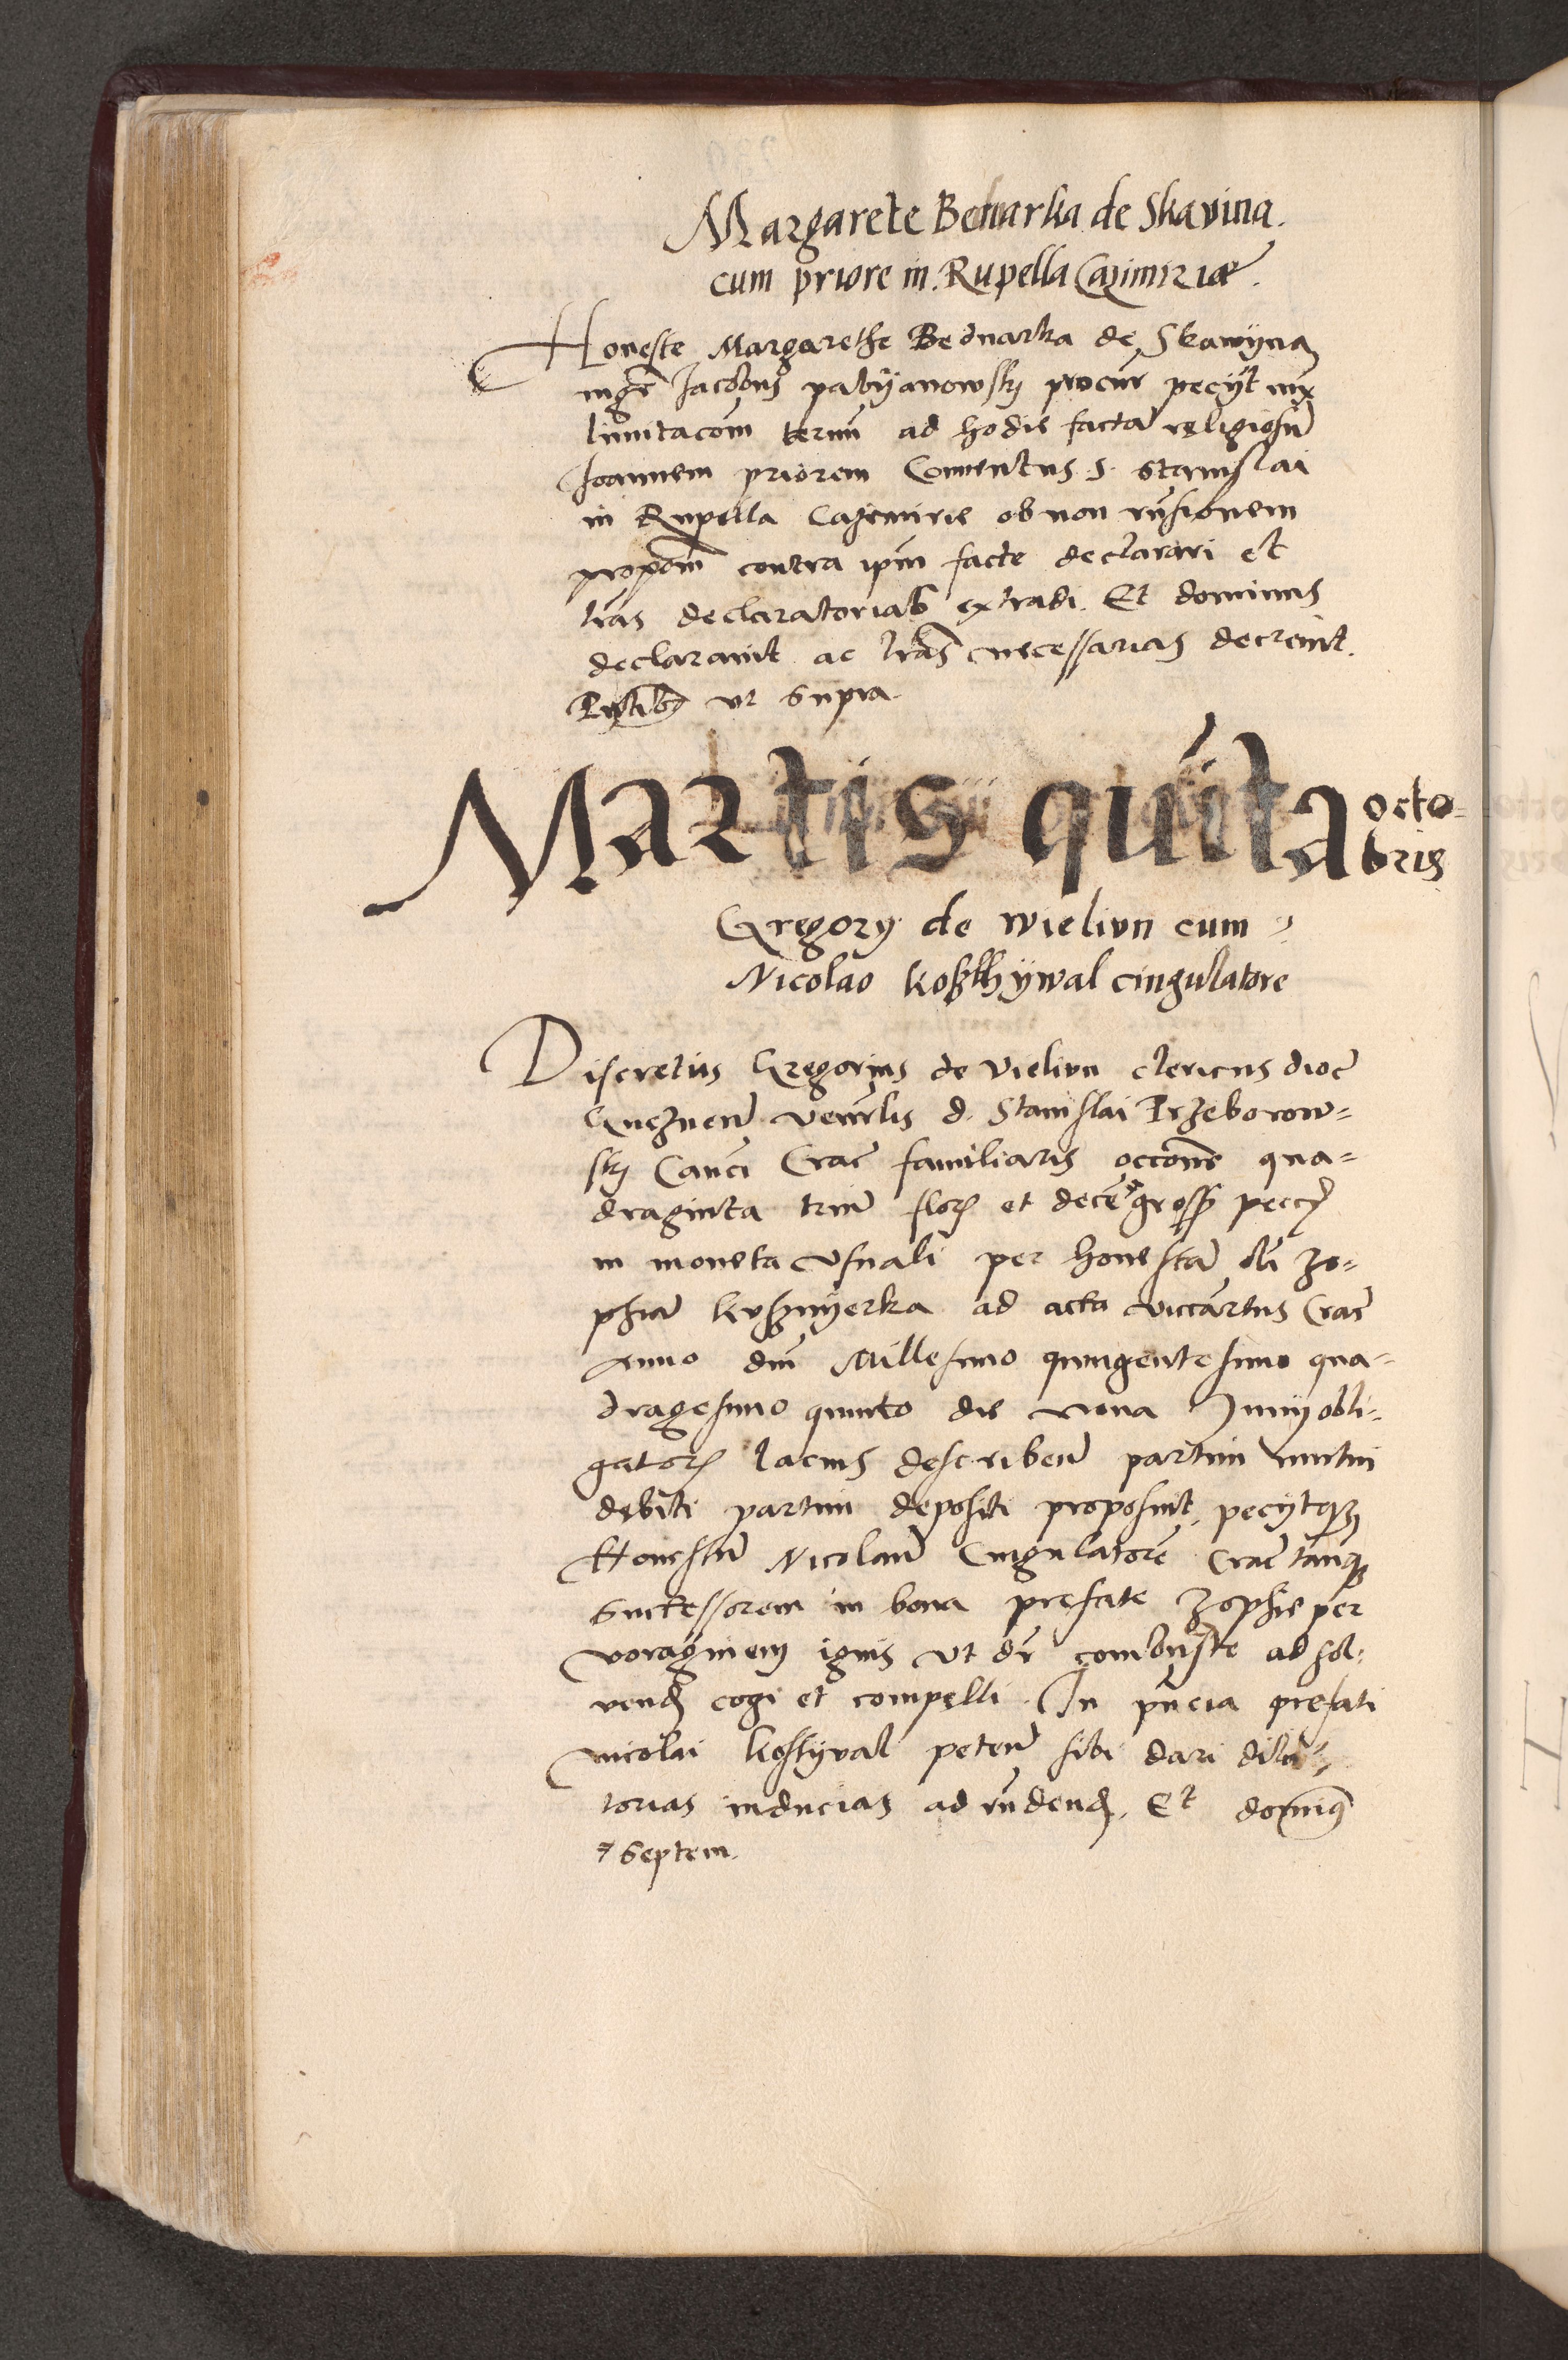 Margarete Bednarka de Skavina.
cum priore in Rupella Cazimiriæ.
Honeste Margarethe Bednarka de Skawyna
mgr Jacobus pabyanowsky procur pecyt iux
limitacom termi ad hodie facta religiosu
Joannem priorem Conventus S. Stanislai
in Rupella Cazimirie ob non rnsionem
propom contra ipm facte declarari et
lras declaratorias extradi. Et dominus
declaravit ac lras necessarias decrevit.
Pntibus ut supra.
Martis quita octo=
bris
Gregory de wielun cum
Nicolao kosthywal cingulatore
Discretus Gregorius de Vielun clericus dioc
Gneznen venerlis d. Stanislai Przeborow=
sky Canci Crac familiaris occone qua=
draginta triu flor et dece gross pecc
in moneta usuali per honesta oli Zo=
phia kusznyerka ad acta viccartus Crac
Anno dni Millesimo quingentesimo qua=
dragesimo quinto die nona Junij obli=
gator lacius describen partim mutui
debiti partim depositi proposuit, pecytq
Honestu Nicolau Cingulatore Crac tanq
successorem in bona prefate Zophie per
voraginem ignis ut dr combuste ad sol=
vend cogi et compelli. In pncia prefati
nicolai kostyval peten sibi dari dila=
torias inducias ad rndend. Et dominus
7 septem.